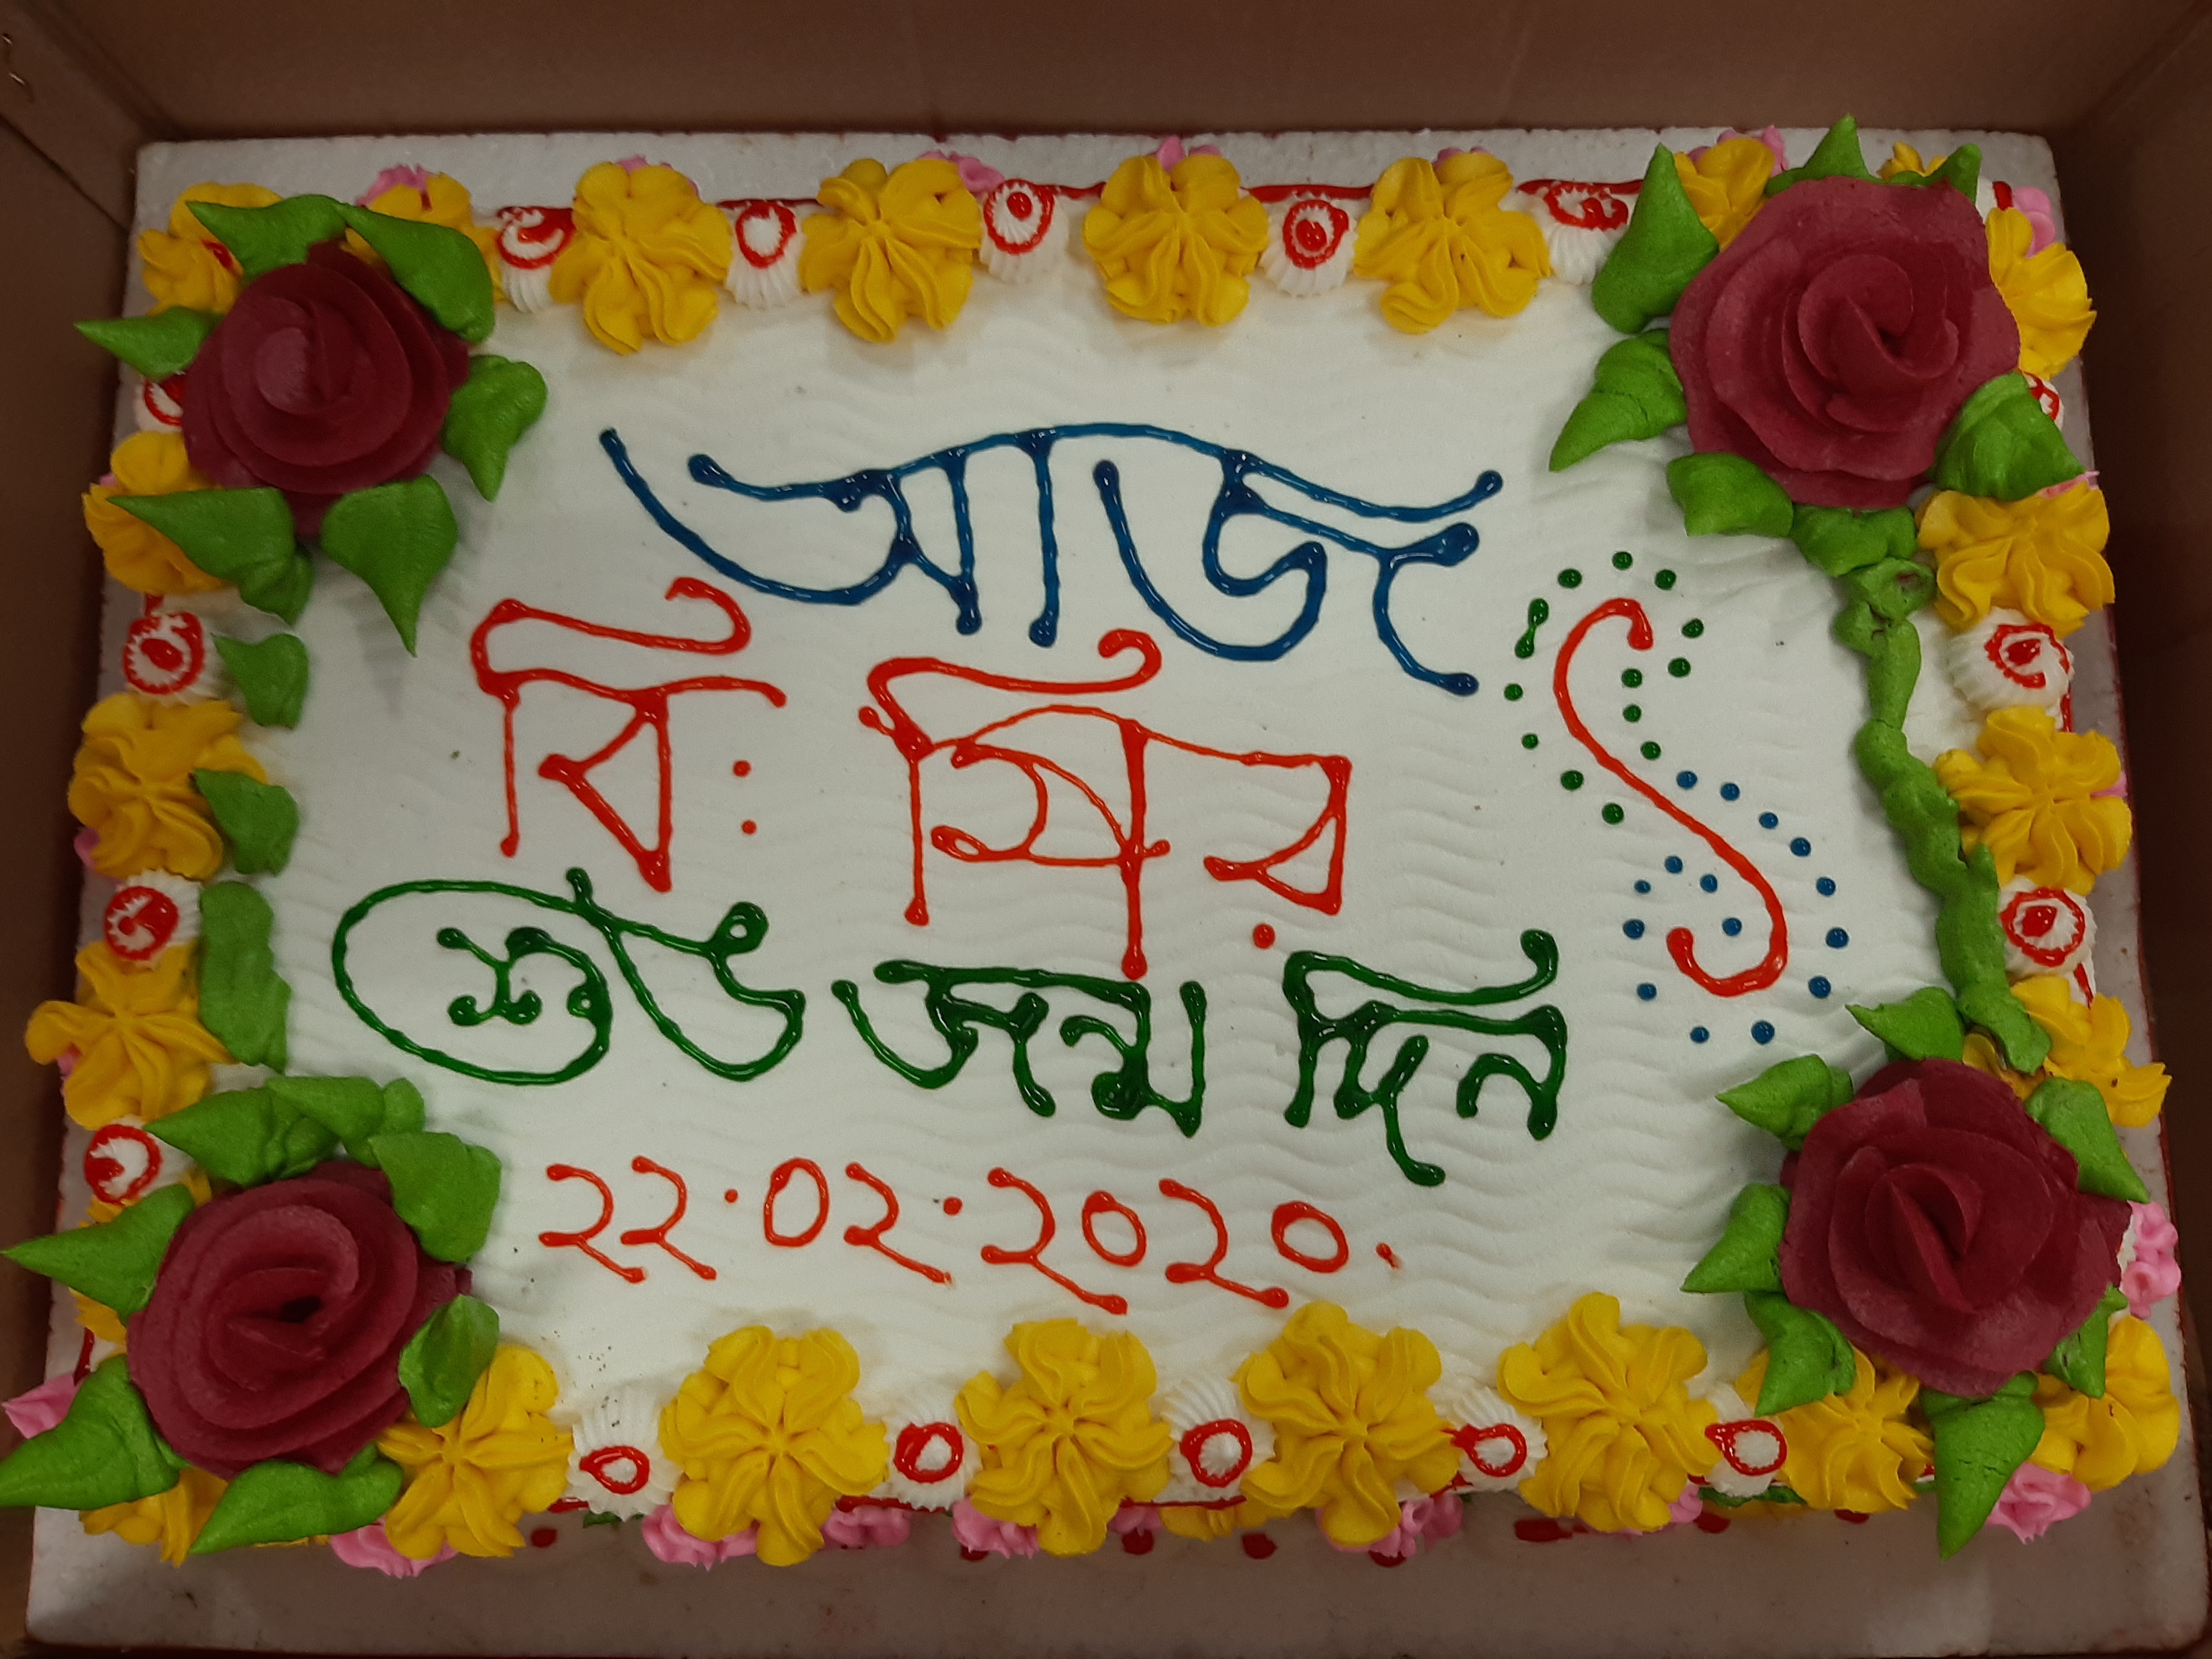 আজ
বি: প্রির ১
শুভ জন্ম দিন
২২.০২.২০২০.